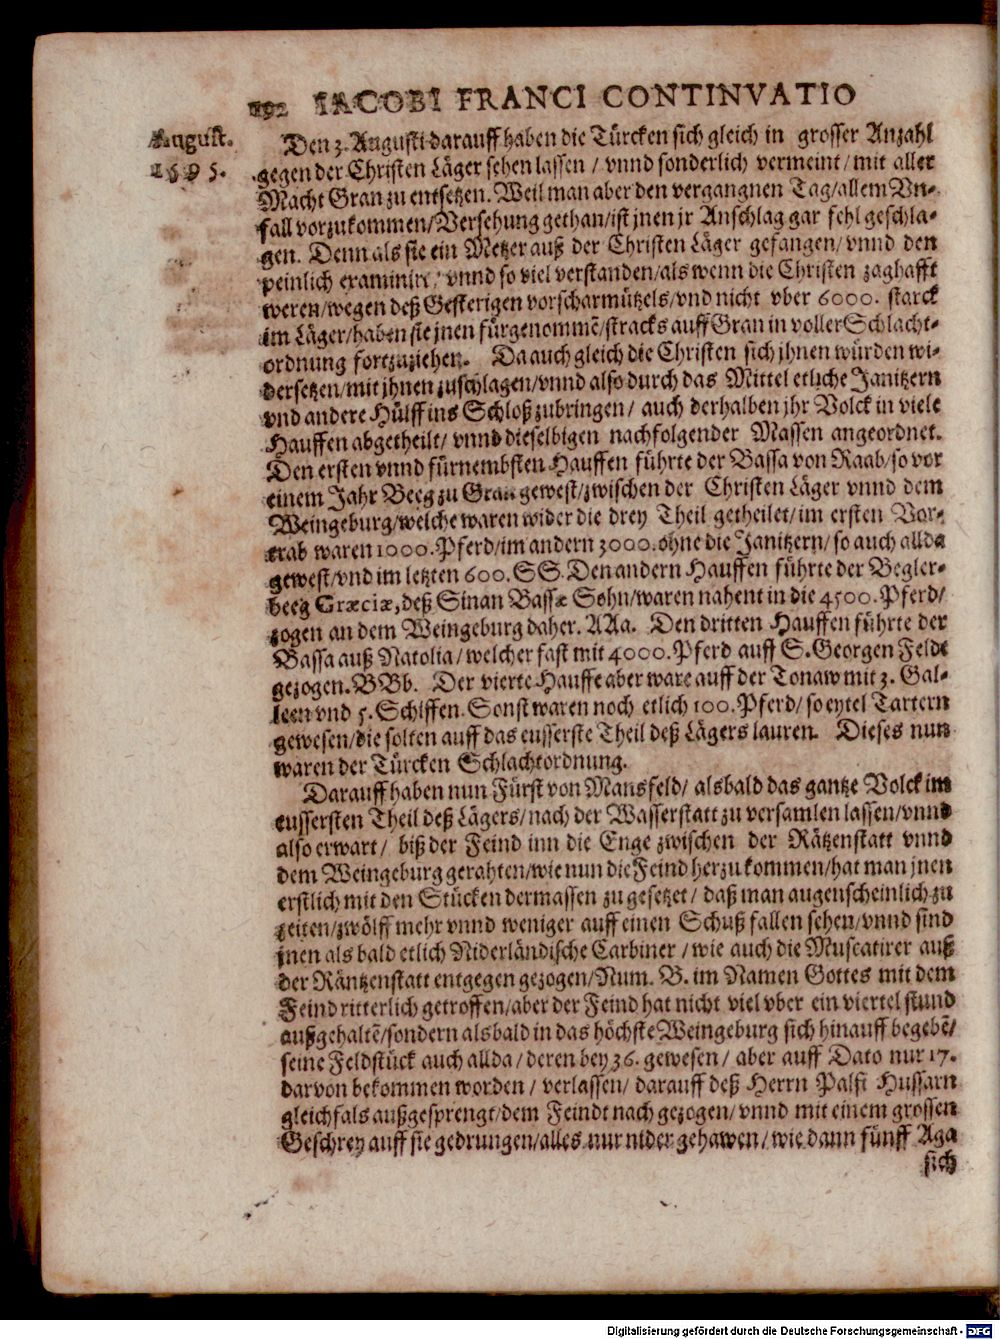 192 IACOBI FRANCI CONTINVATIO
August.
1595.
Den 3. Augusti darauff haben die Türcken sich gleich in grosser Anzahl
gegen der Christen Läger sehen lassen / vnnd sonderlich vermeint / mit aller
Macht Gran zu entsetzen. Weil man aber den vergangnen Tag / allem Vn-
fall vorzukommen / Versehung gethan / ist jnen jr Anschlag gar fehl geschla-
gen. Denn als sie ein Metzer auß der Christen Läger gefangen / vnnd den
peinlich examinirt / vnnd so viel verstanden / als wenn die Christen zaghafft
weren / wegen deß Gesterigen vorscharmützels / vnd nicht vber 6000. starck
im Läger / haben sie jnen fürgenommē / stracks auff Gran in voller Schlacht-
ordnung fortzuziehen. Da auch gleich die Christen sich jhnen würden wi-
dersetzen / mit jhnen zuschlagen / vnnd also durch das Mittel etliche Janitzern
vnd andere Hülff ins Schloß zubringen / auch derhalben jhr Volck in viele
Hauffen abgetheilt / vnnd dieselbigen nachfolgender Massen angeordnet.
Den ersten vnnd fürnembsten Hauffen führte der Bassa von Raab / so vor
einem Jahr Beeg zu Gran gewest / zwischen der Christen Läger vnnd dem
Weingeburg / welche waren wider die drey Theil getheilet / im ersten Vor-
trab waren 1000. Pferd / im andern 3000. ohne die Janitzern / so auch allda
gewest / vnd im letzten 600. SS. Den andern Hauffen führte der Begler-
beeg Græciæ, deß Sinan Bassæ Sohn / waren nahent in die 4500. Pferd /
zogen an dem Weingeburg daher. AAa. Den dritten Hauffen führte der
Bassa auß Natolia / welcher fast mit 4000. Pferd auff S. Georgen Felde
gezogen. BBb. Der vierte Hauffe aber ware auff der Tonaw mit 3. Gal-
leen vnd 5. Schiffen. Sonst waren noch etlich 100. Pferd / so eytel Tartern
gewesen / die solten auff das eusserste Theil deß Lägers lauren. Dieses nun
waren der Türcken Schlachtordnung.
Darauff haben nun Fürst von Mansfeld / alsbald das gantze Volck im
eussersten Theil deß Lägers / nach der Wasserstatt zu versamlen lassen / vnnd
also erwart / biß der Feind inn die Enge zwischen der Rätzenstatt vnnd
dem Weingeburg gerahten / wie nun die Feind herzu kommen / hat man jnen
erstlich mit den Stücken dermassen zu gesetzet / daß man augenscheinlich zu
zeiten / zwölff mehr vnnd weniger auff einen Schuß fallen sehen / vnnd sind
jnen als bald etlich Niderländische Carbiner / wie auch die Muscatirer auß
der Räntzenstatt entgegen gezogen / Num. B. im Namen Gottes mit dem
Feind ritterlich getroffen / aber der Feind hat nicht viel vber ein viertel stund
außgehaltē / sondern alsbald in das höchste Weingeburg sich hinauff begebē /
seine Feldstück auch allda / deren bey 36. gewesen / aber auff Dato nur 17.
darvon bekommen worden / verlassen / darauff deß Herrn Palfi Hussarn
gleichfals außgesprengt / dem Feindt nach gezogen / vnnd mit einem grossen
Geschrey auff sie gedrungen / alles nur nider gehawen / wie dann fünff Aga
sich
Digitalisierung gefördert durch die Deutsche Forschungsgemeinschaft - DFG